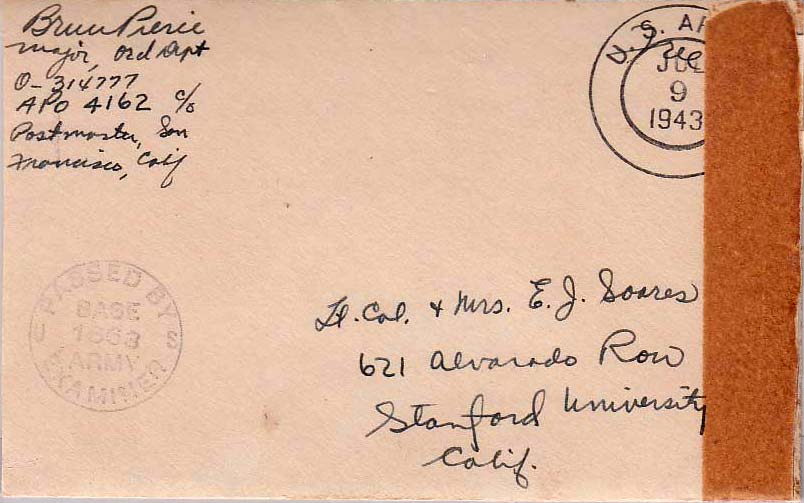 Bruce Pierce
Major, Ord Dept
O-314777
APO 4162 c/o
Postmaster, San
Francisco, Calif
U. S. AR
JUL
9
1943
PASSED BY
BASE
1863
ARMY
EXAMINER
U S
Lt. Col. & Mrs. E. J. Soares
621 Alvarado Row
Stanford University
Calif.